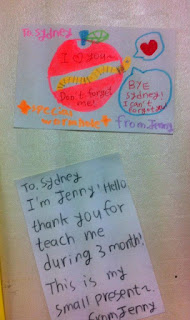 To. Sydney
I ♡ you~
Don't forget
me!
BYE
Sydney!
I can't
forget you!
from. Jenny
To. Sydney
I'm Jenny! Hello
thank you for
teach me
during 3 month!
This is my
small present~.
from Jenny